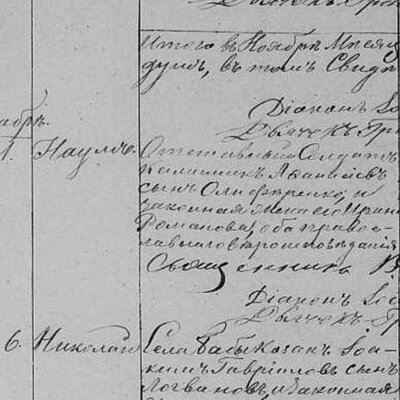 Дьячекъ Гри
Итого въ Ноябрѣ Мѣсяц
душъ, въ томъ Свидѣ
Діаконъ Іо
Дьячекъ Гри
абрь.
1. Наумъ. Отставный Солдатъ
Калинникъ Аѳанасіевъ
сынъ и
законная Жена его Ирин
Романова, оба право-
славнаго вѣроисповѣданія
Священникъ В
Діаконъ Іо
Дьячекъ Гр
6. Николай Села Бабы Козакъ Іоа-
кимъ Гавріиловъ сынъ
Логвиновъ, и Законная